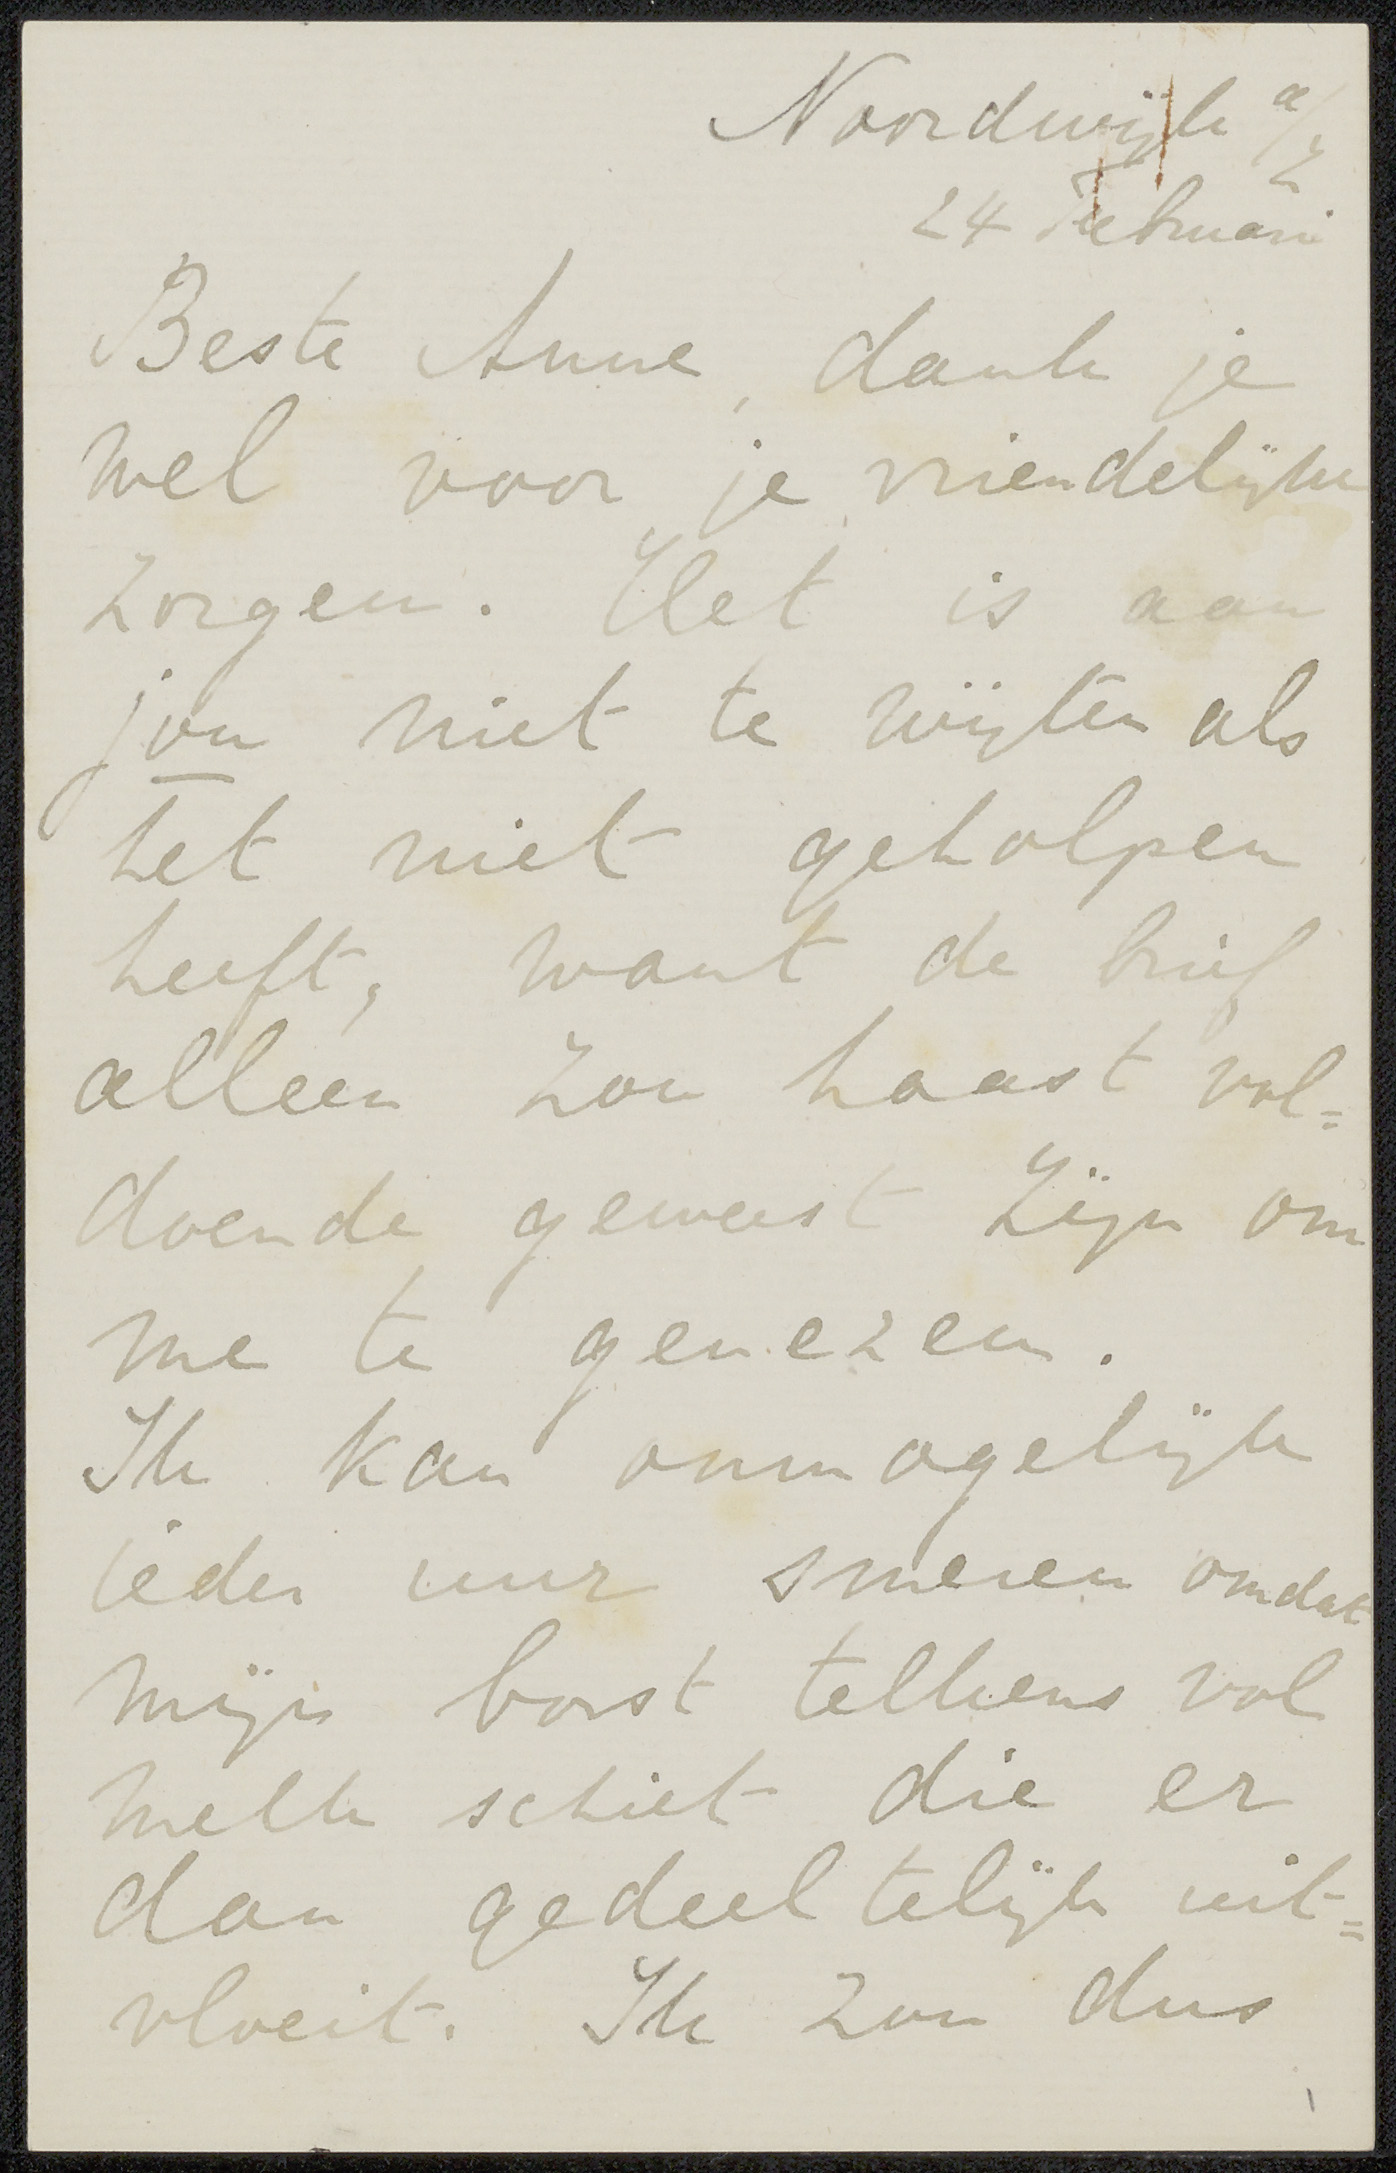 Noordwijk a/z
24 Februari
Beste Anne, dank je
wel voor je vriendelijke
zorgen. Het is aan
jou niet te wijten als
het niet geholpen
heeft, want de brief
alleen zou haast vol=
doende geweest zijn om
me te genezen.
Ik kan onmogelijk
ieder uur smeren omdat
mijn borst telkens vol
melk schiet die er
dan gedeeltelijk uit=
vloeit. Ik zou dus